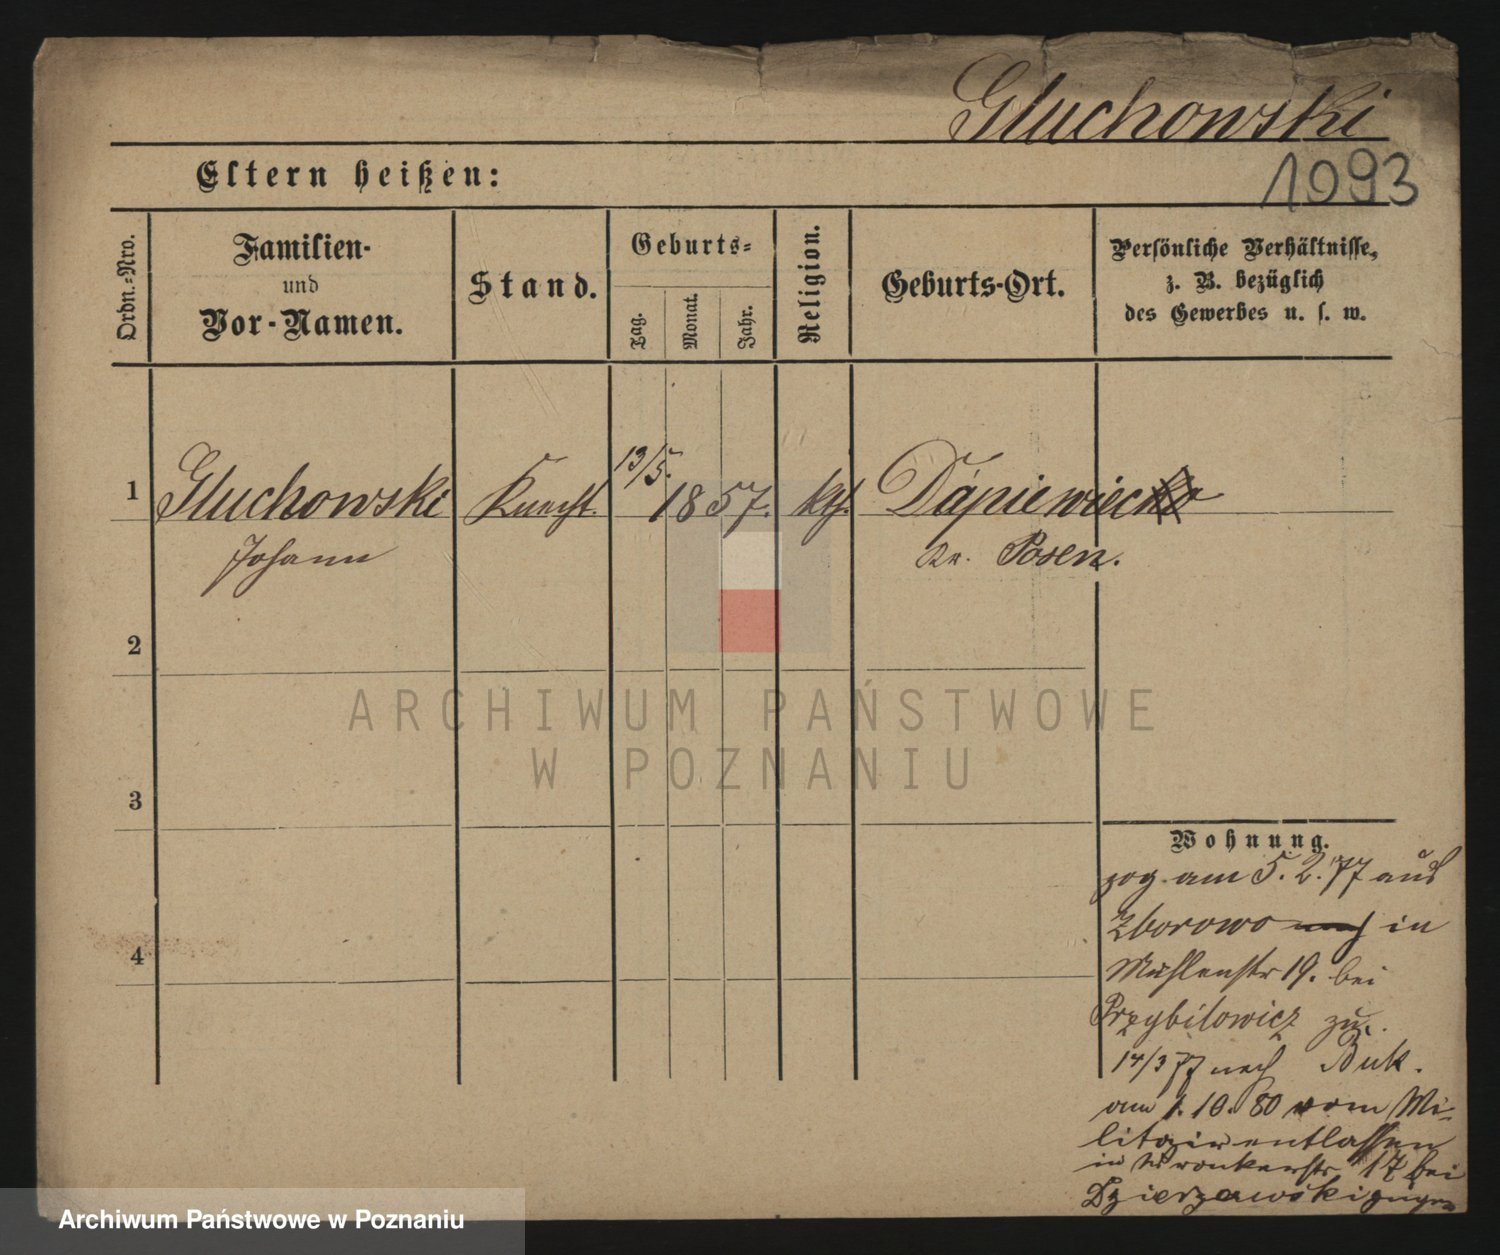 Gluchowski
Eltern heißen:
1093
Ordn.-Nro.
Familien-
und
Vor-Namen.
Stand.
Geburts-
Tag.
Monat.
Jahr.
Religion.
Geburts-Ort.
Persönliche Verhältnisse,
z. B. bezüglich
des Gewerbes u. s. w.
1
Gluchowski
Johann
Knecht.
13/5.
1857.
kth.
Dąpiewiec
Kr. Posen.
2
3
4
Wohnung.
zog am 5.2.77 aus
Zborowo in
Mühlenstr 19. bei
Przybilowicz zu.
14/3 77 nach Buk.
am 1.10.80 vom Mi-
litair entlassen
in Wronkerstr 17 bei
Dzierzawski
ARCHIWUM PAŃSTWOWE
W POZNANIU
Archiwum Państwowe w Poznaniu